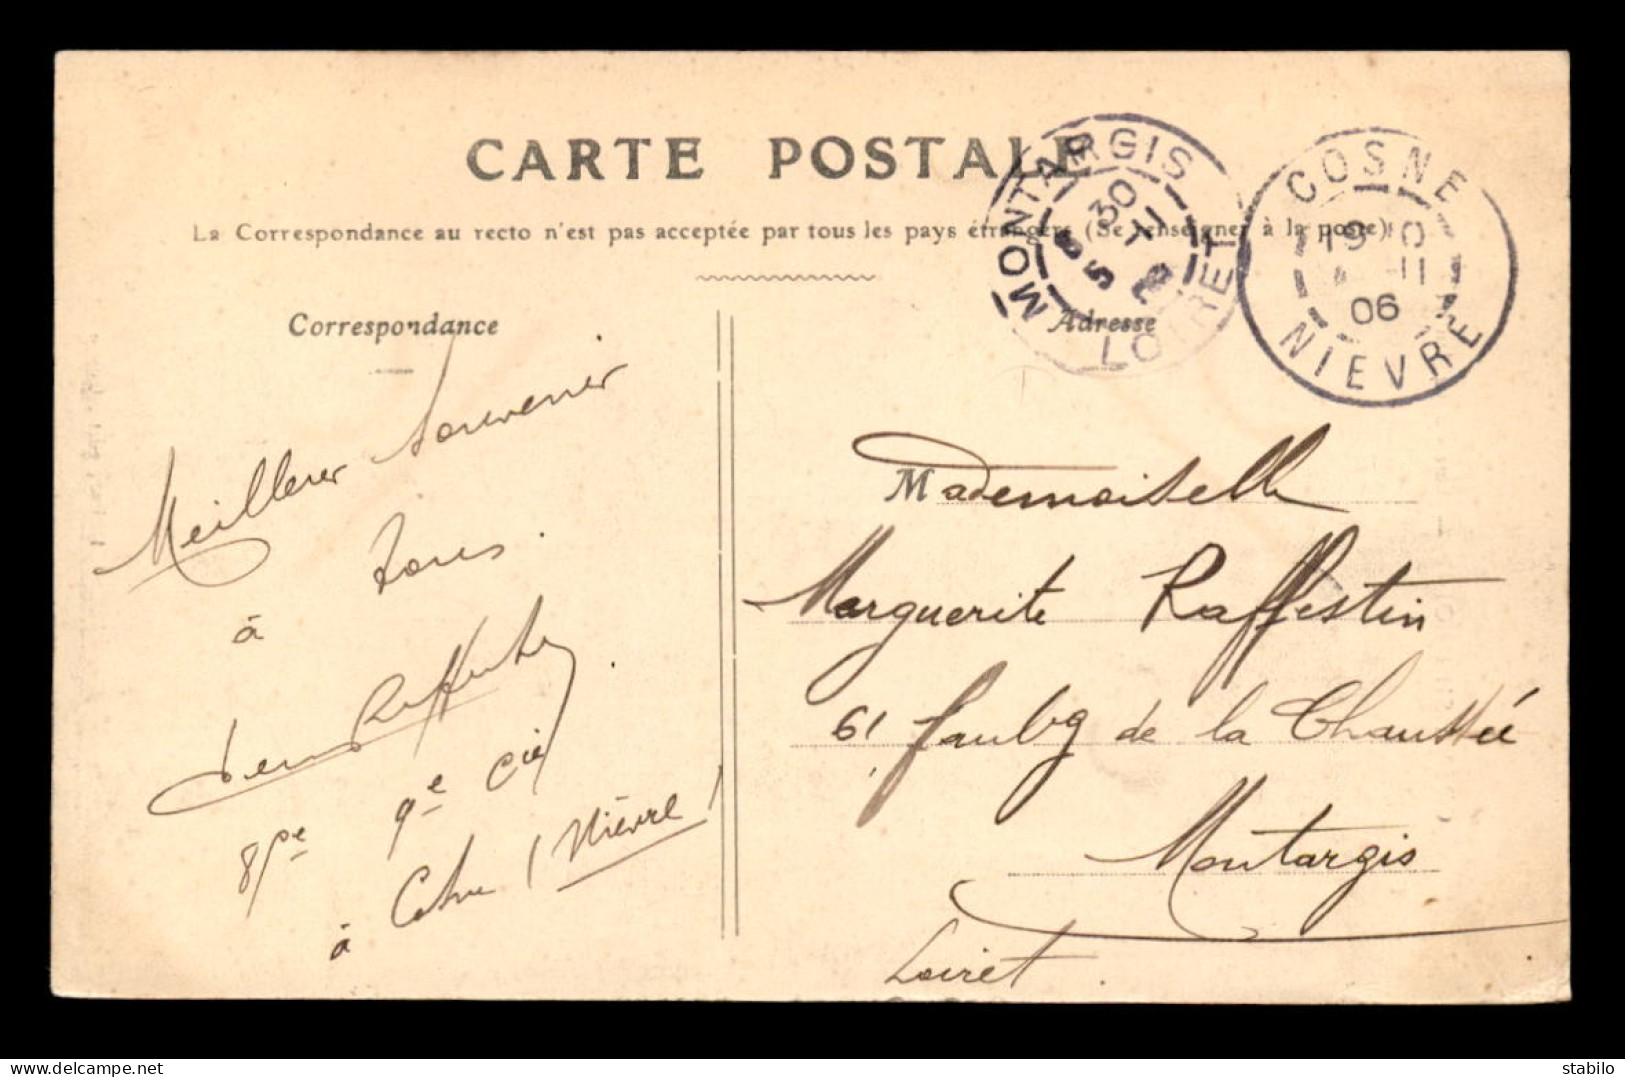 CARTE POSTALE
La Correspondance au recto n'est pas acceptée par tous les pays étrangers (Se renseigner à la poste)
MONTARGIS
30
5
LOIRET
COSNE
19
11
06
NIEVRE
Correspondance
Adresse
Meilleur souvenir
à tous.
9e Cie
à Cosne (Nièvre)
Mademoiselle
Marguerite Raffestin
61 faubg de la Chaussée
Montargis
Loiret.
www.delcampe.net
stabilo